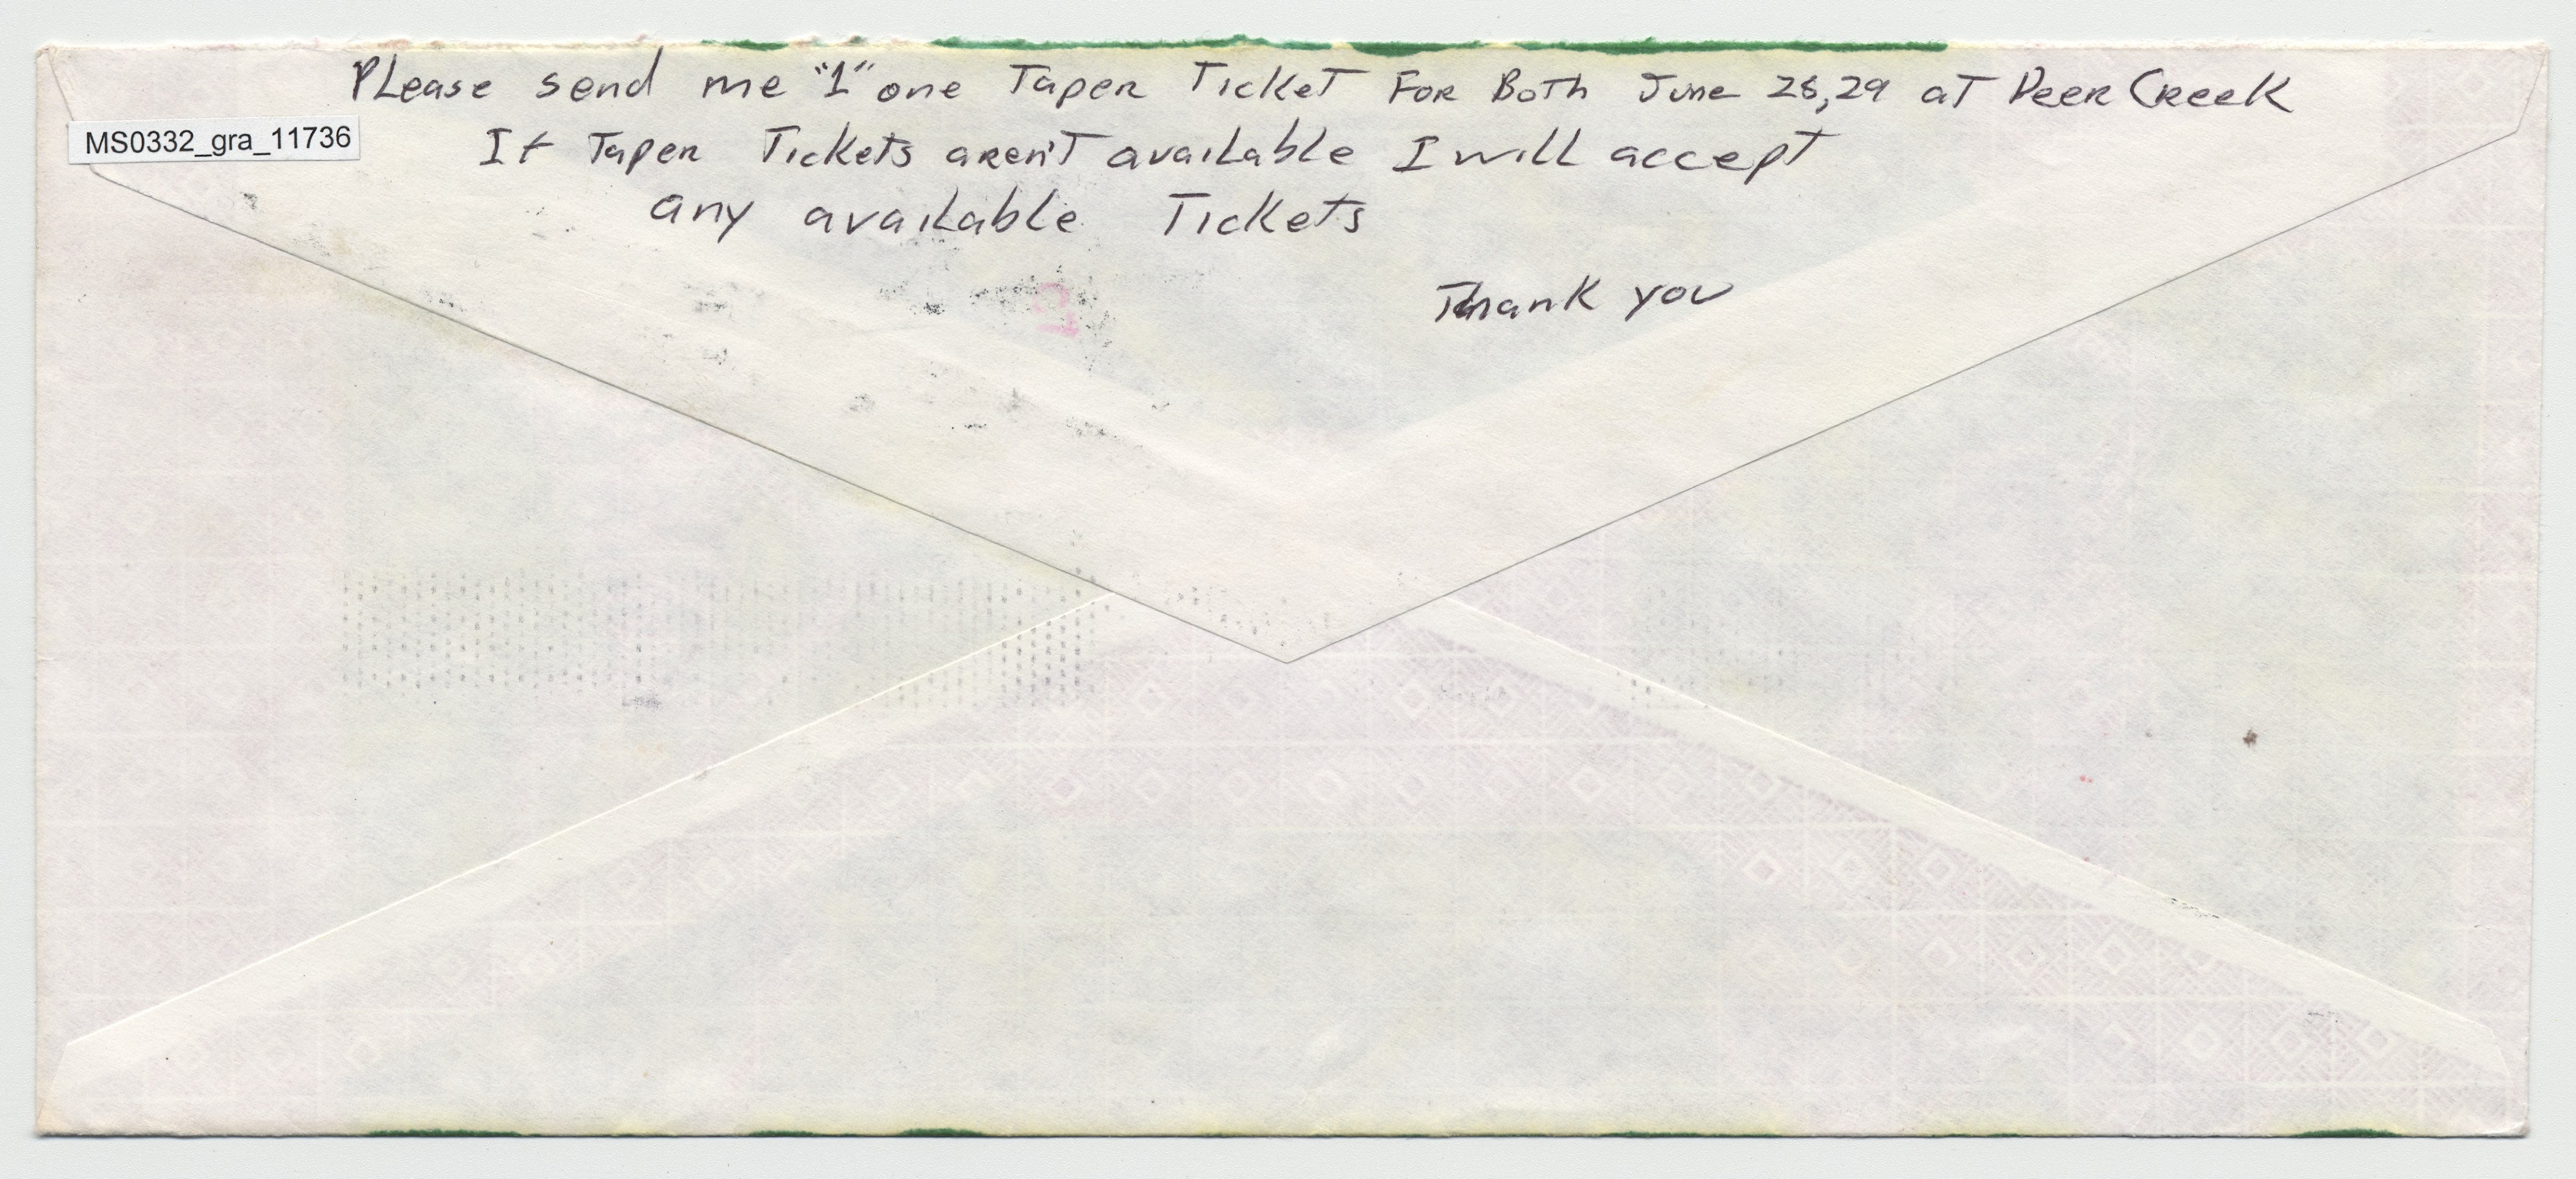 PLease send me "1" one Taper Ticket For Both June 28,29 at Deer Creek
MS0332_gra_11736
If Taper Tickets aren't available I will accept
any available Tickets
Thank you